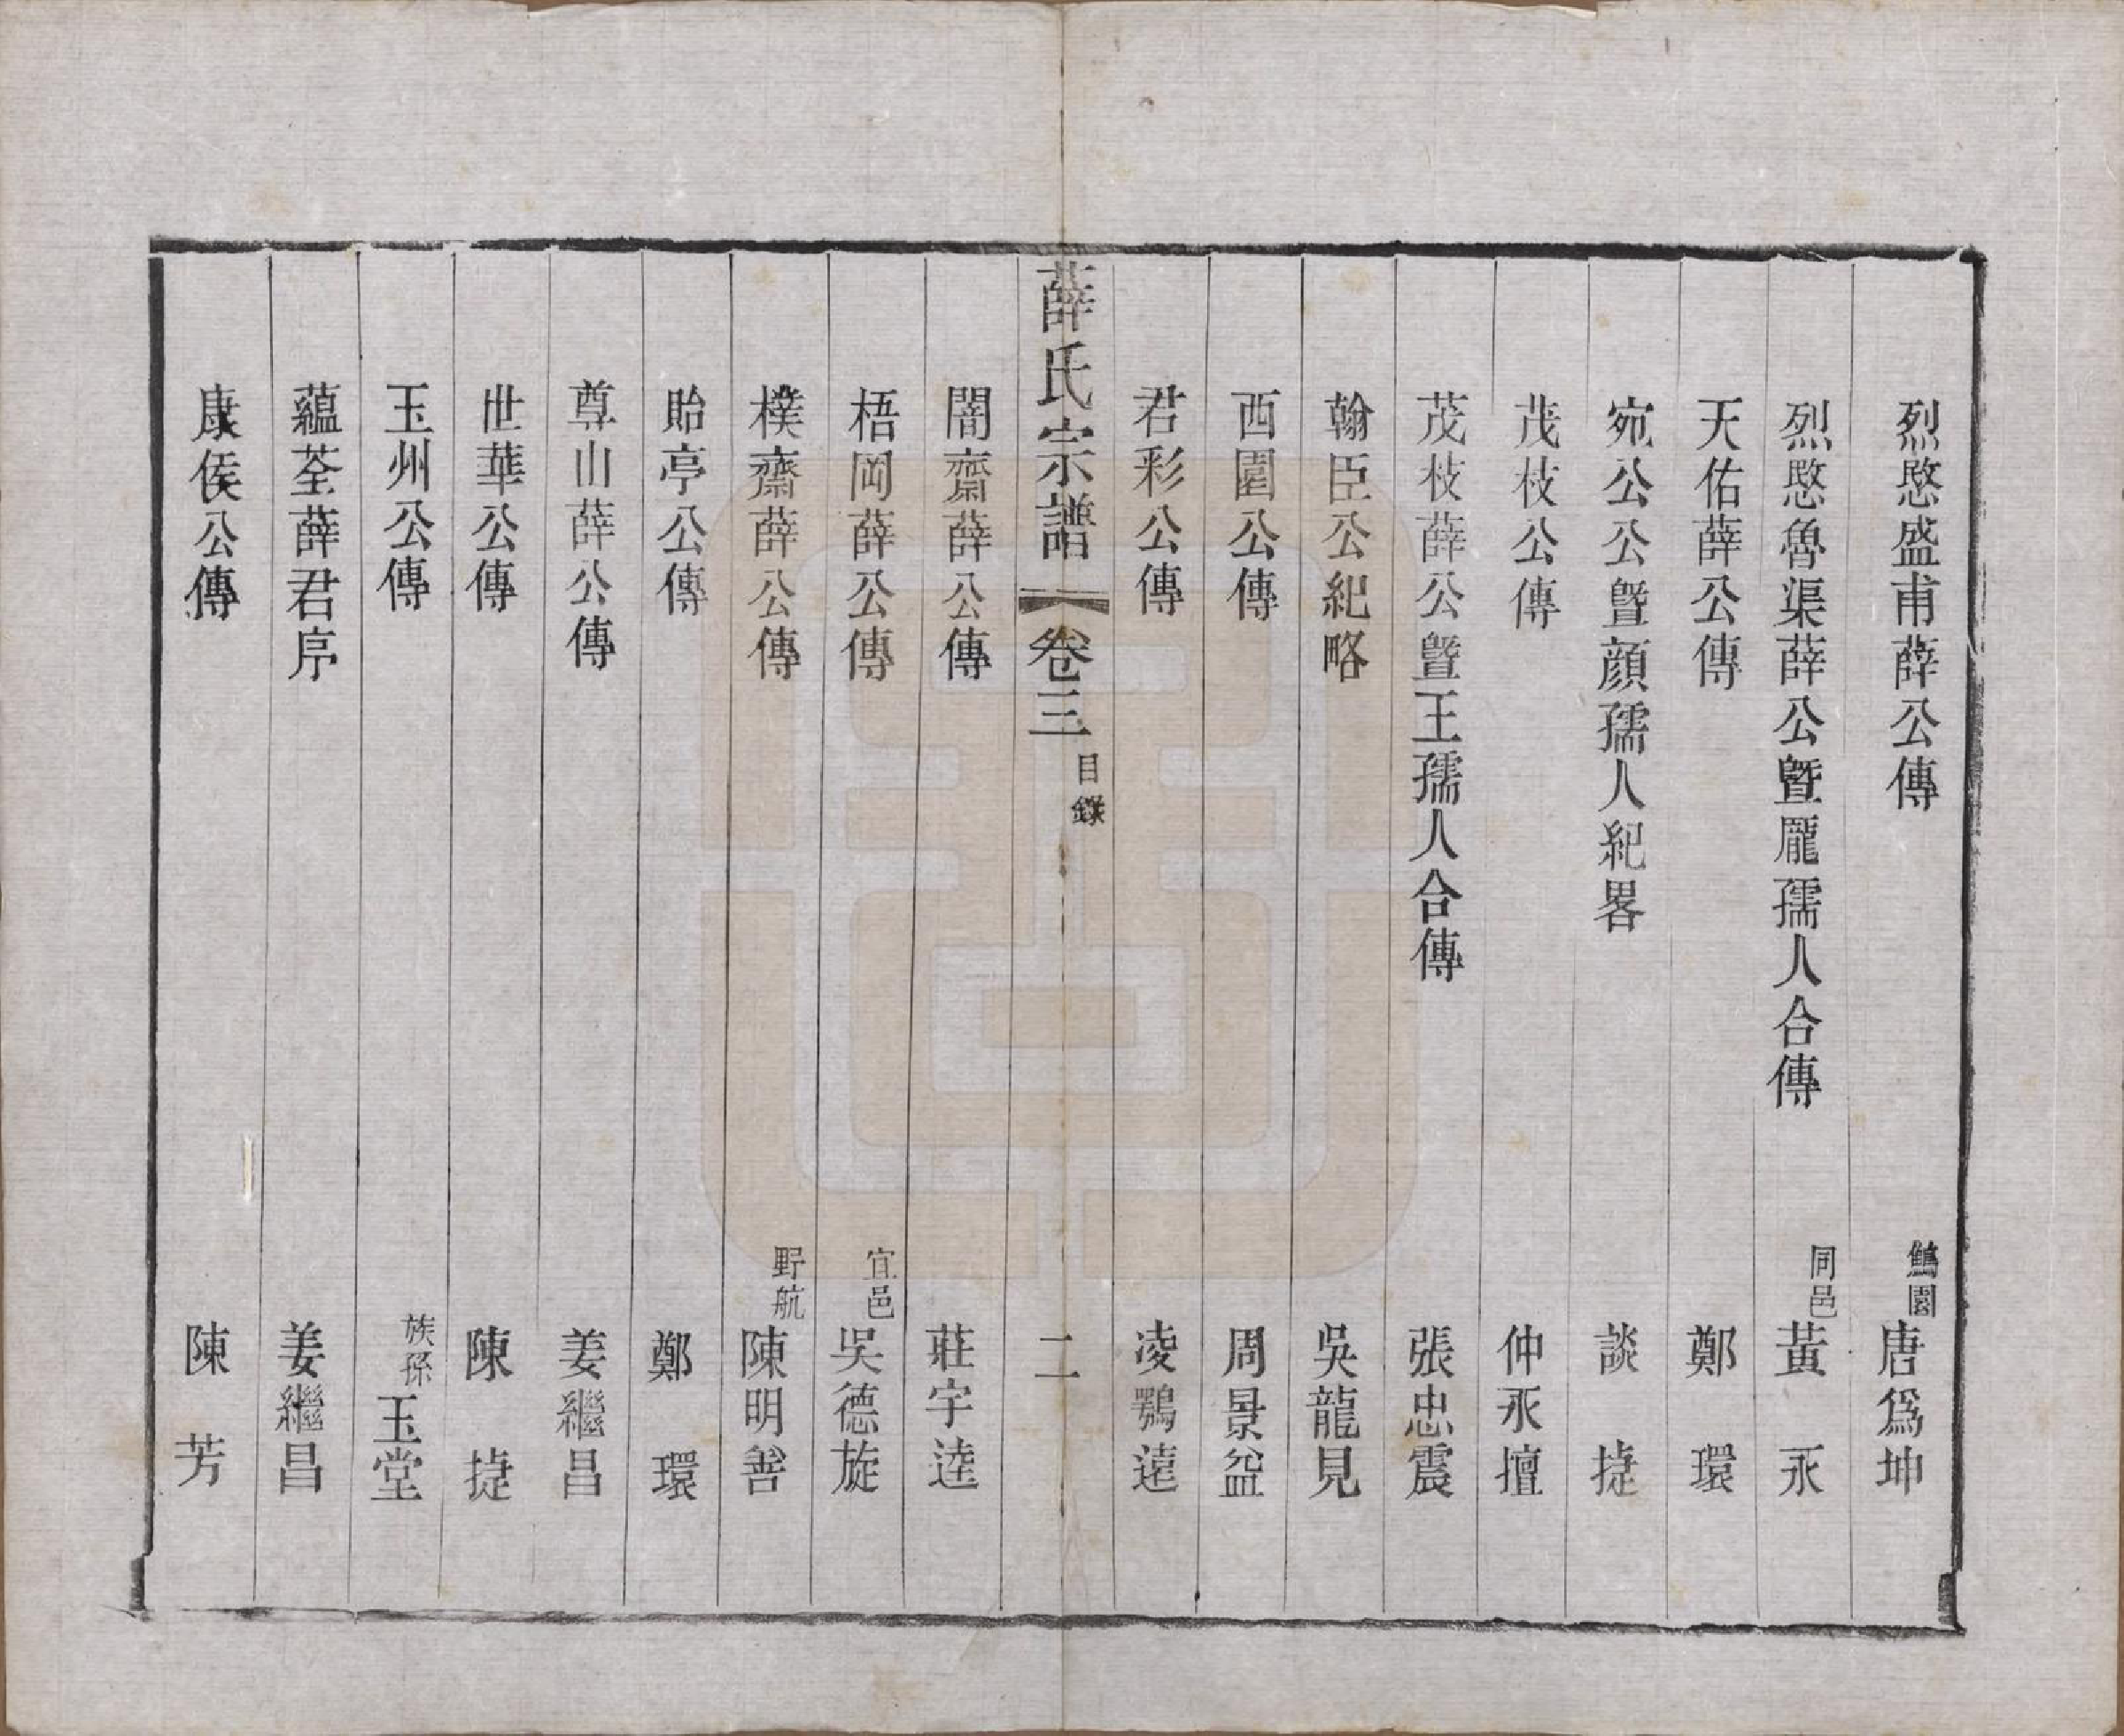 烈愍盛甫薛公傳 鷦園唐爲坤
烈愍魯渠薛公曁龎孺人合傳 同邑黃永
天佑薛公傳 鄭環
宛公公曁顔孺人紀畧 談捷
茂枝公傳 仲永擅
茂枝薛公曁王孺人合傳 張忠震
翰臣公紀略 吳龍見
西園公傳 周景益
君彩公傳 凌鶚遠
薛氏宗譜 卷三 目錄 二
闇齋薛公傳 莊宇逵
梧岡薛公傳 宜邑吳德旋
樸齋薛公傳 野航陳明善
貽亭公傳 鄭環
尊山薛公傳 姜繼昌
世華公傳 陳捷
玉州公傳 族孫玉堂
蘊荃薛君序 姜繼昌
康侯公傳 陳芳